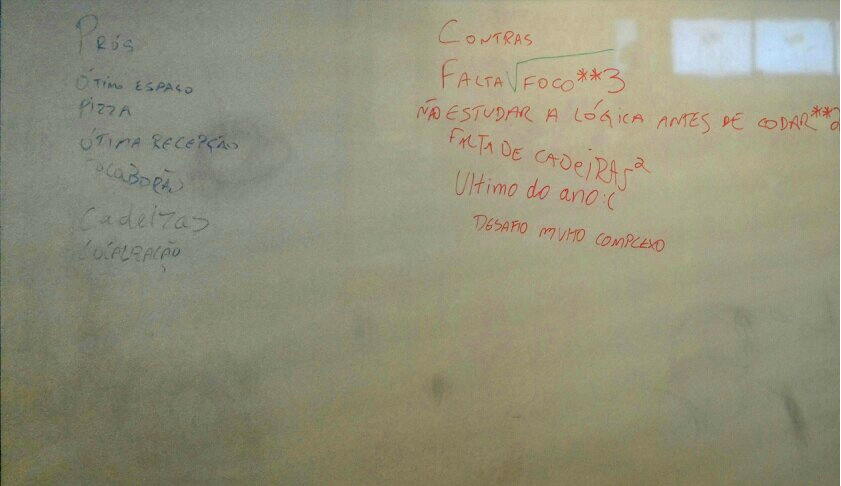 PRÓS
ÓTIMO ESPAÇO
PIZZA
ÓTIMA RECEPÇÃO
COLABORÃO
Cadeiras
LOCALIZAÇÃO
CONTRAS
FALTA √FOCO**3
NÃO ESTUDAR A LÓGICA ANTES DE CODAR**2
FALTA DE CADEIRAS²
Ultimo do ano :(
DESAFIO MUITO COMPLEXO